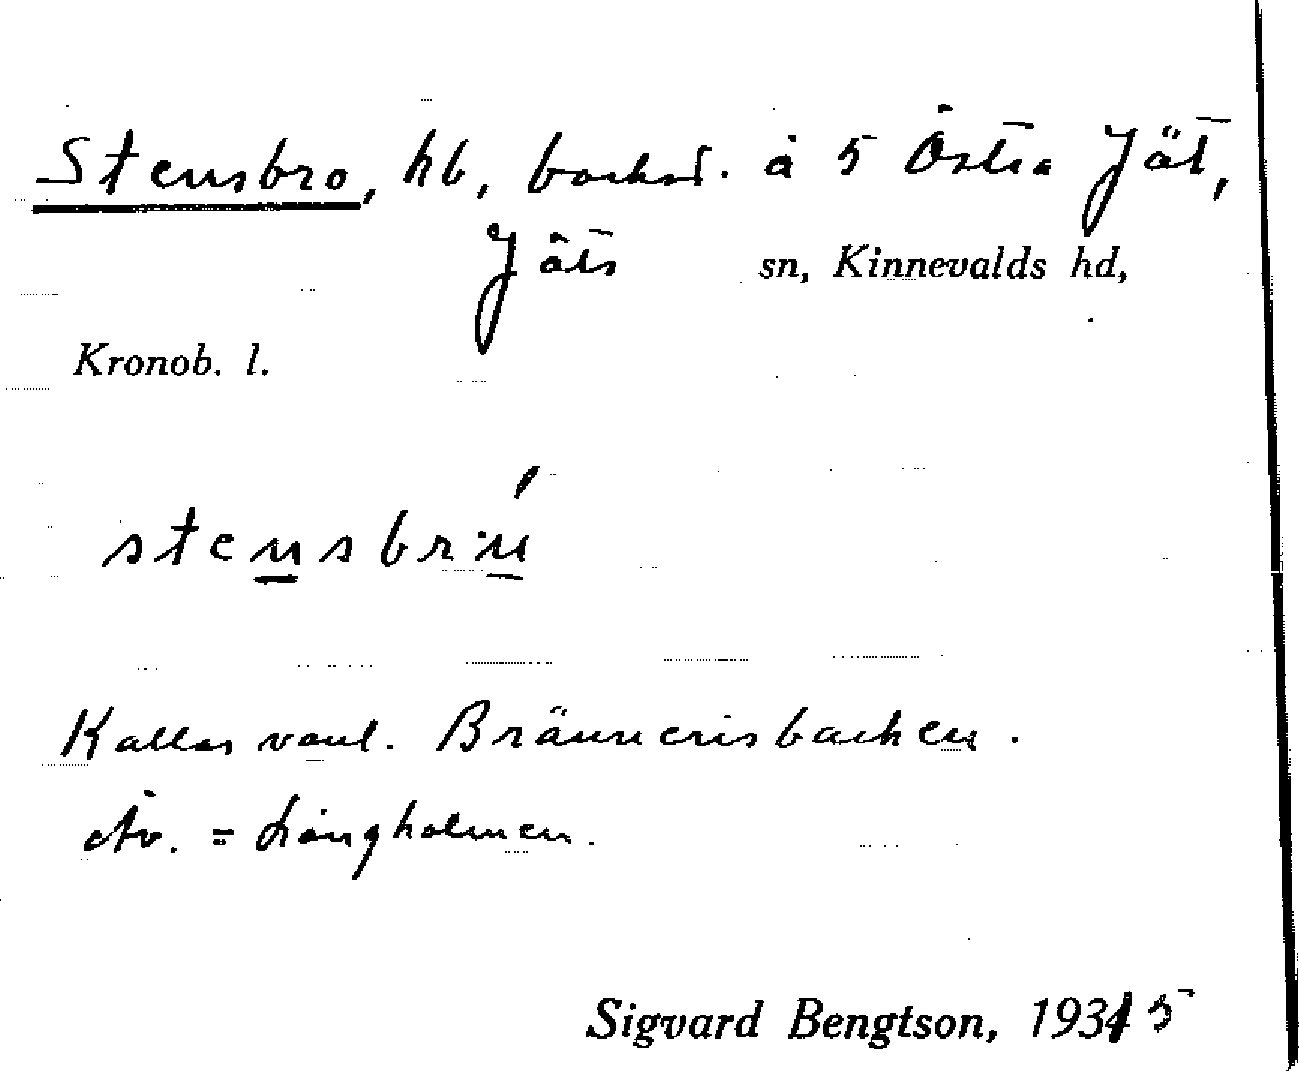 Stensbro, hb, backst. å 5 Östra Jät,
Jäts sn, Kinnevalds hd,
Kronob. l.
stensbrú
Kallas vanl. Brännerisbacken.
Äv. = Långholmen.
Sigvard Bengtson, 1935